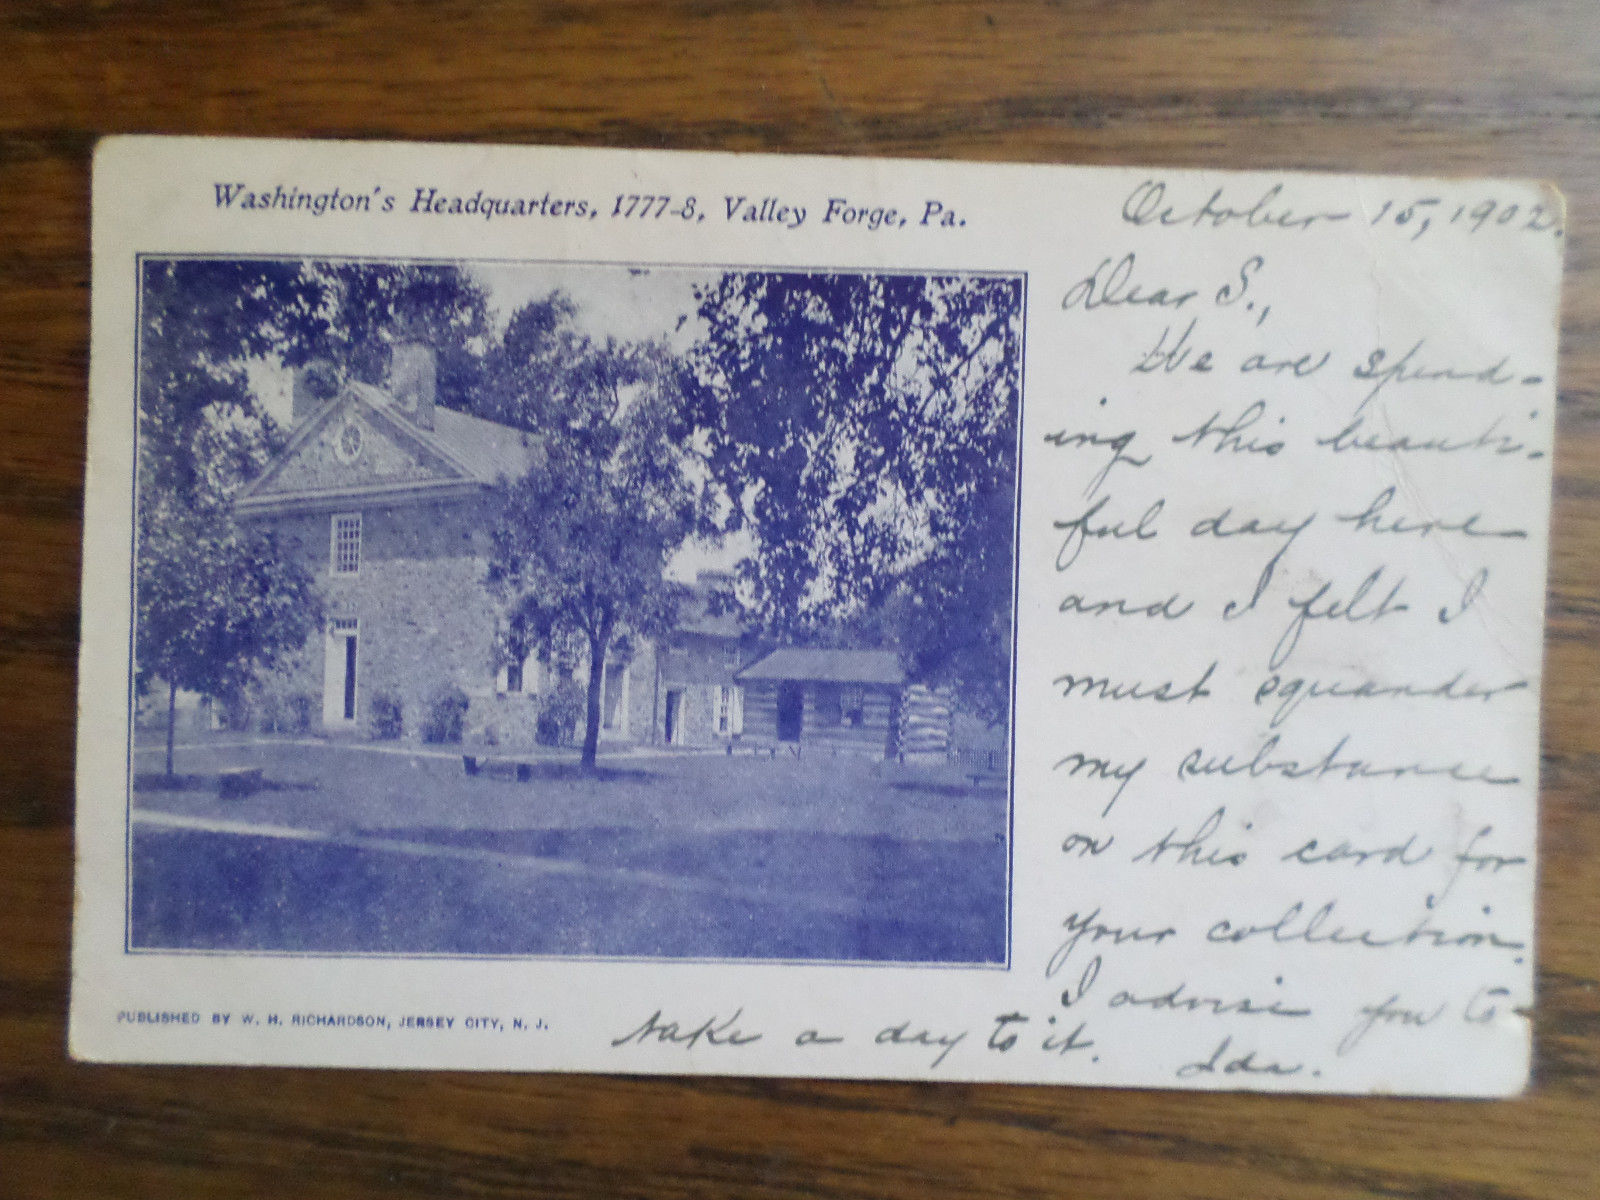 Washington's Headquarters, 1777-8, Valley Forge, Pa.
October 15, 1902.
Dear S.,
We are spend-
ing this beauti-
ful day here
and I felt I
must squander
my substance
on this card for
your collection.
I advise you to
take a day to it.
Ida.
PUBLISHED BY W. H. RICHARDSON, JERSEY CITY, N. J.